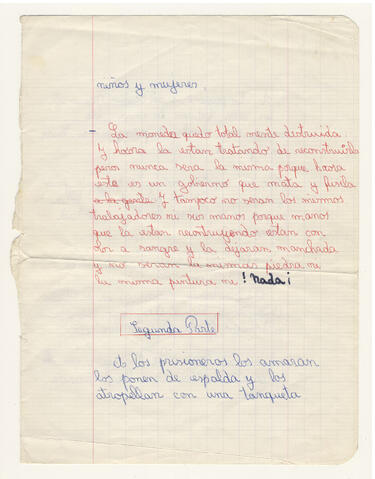 niños y mujeres
- La moneda quedo total mente destruida
Y haora la estan tratando de reconstruirla
pero nunca sera la misma porque haora
este es un gobierno que mata y fusila
a la gente Y tampoco no seran los mismos
trabajadores ni sus manos porque manos
que la estan recontruyendo estan con
olor a sangre y la dejaran manchada
y no seran la mismas piedra ni
la misma pintura ni ! Nada ¡
Segunda Parte
A los prisioneros los amaran
los ponen de espalda y los
atropellan con una tanqueta